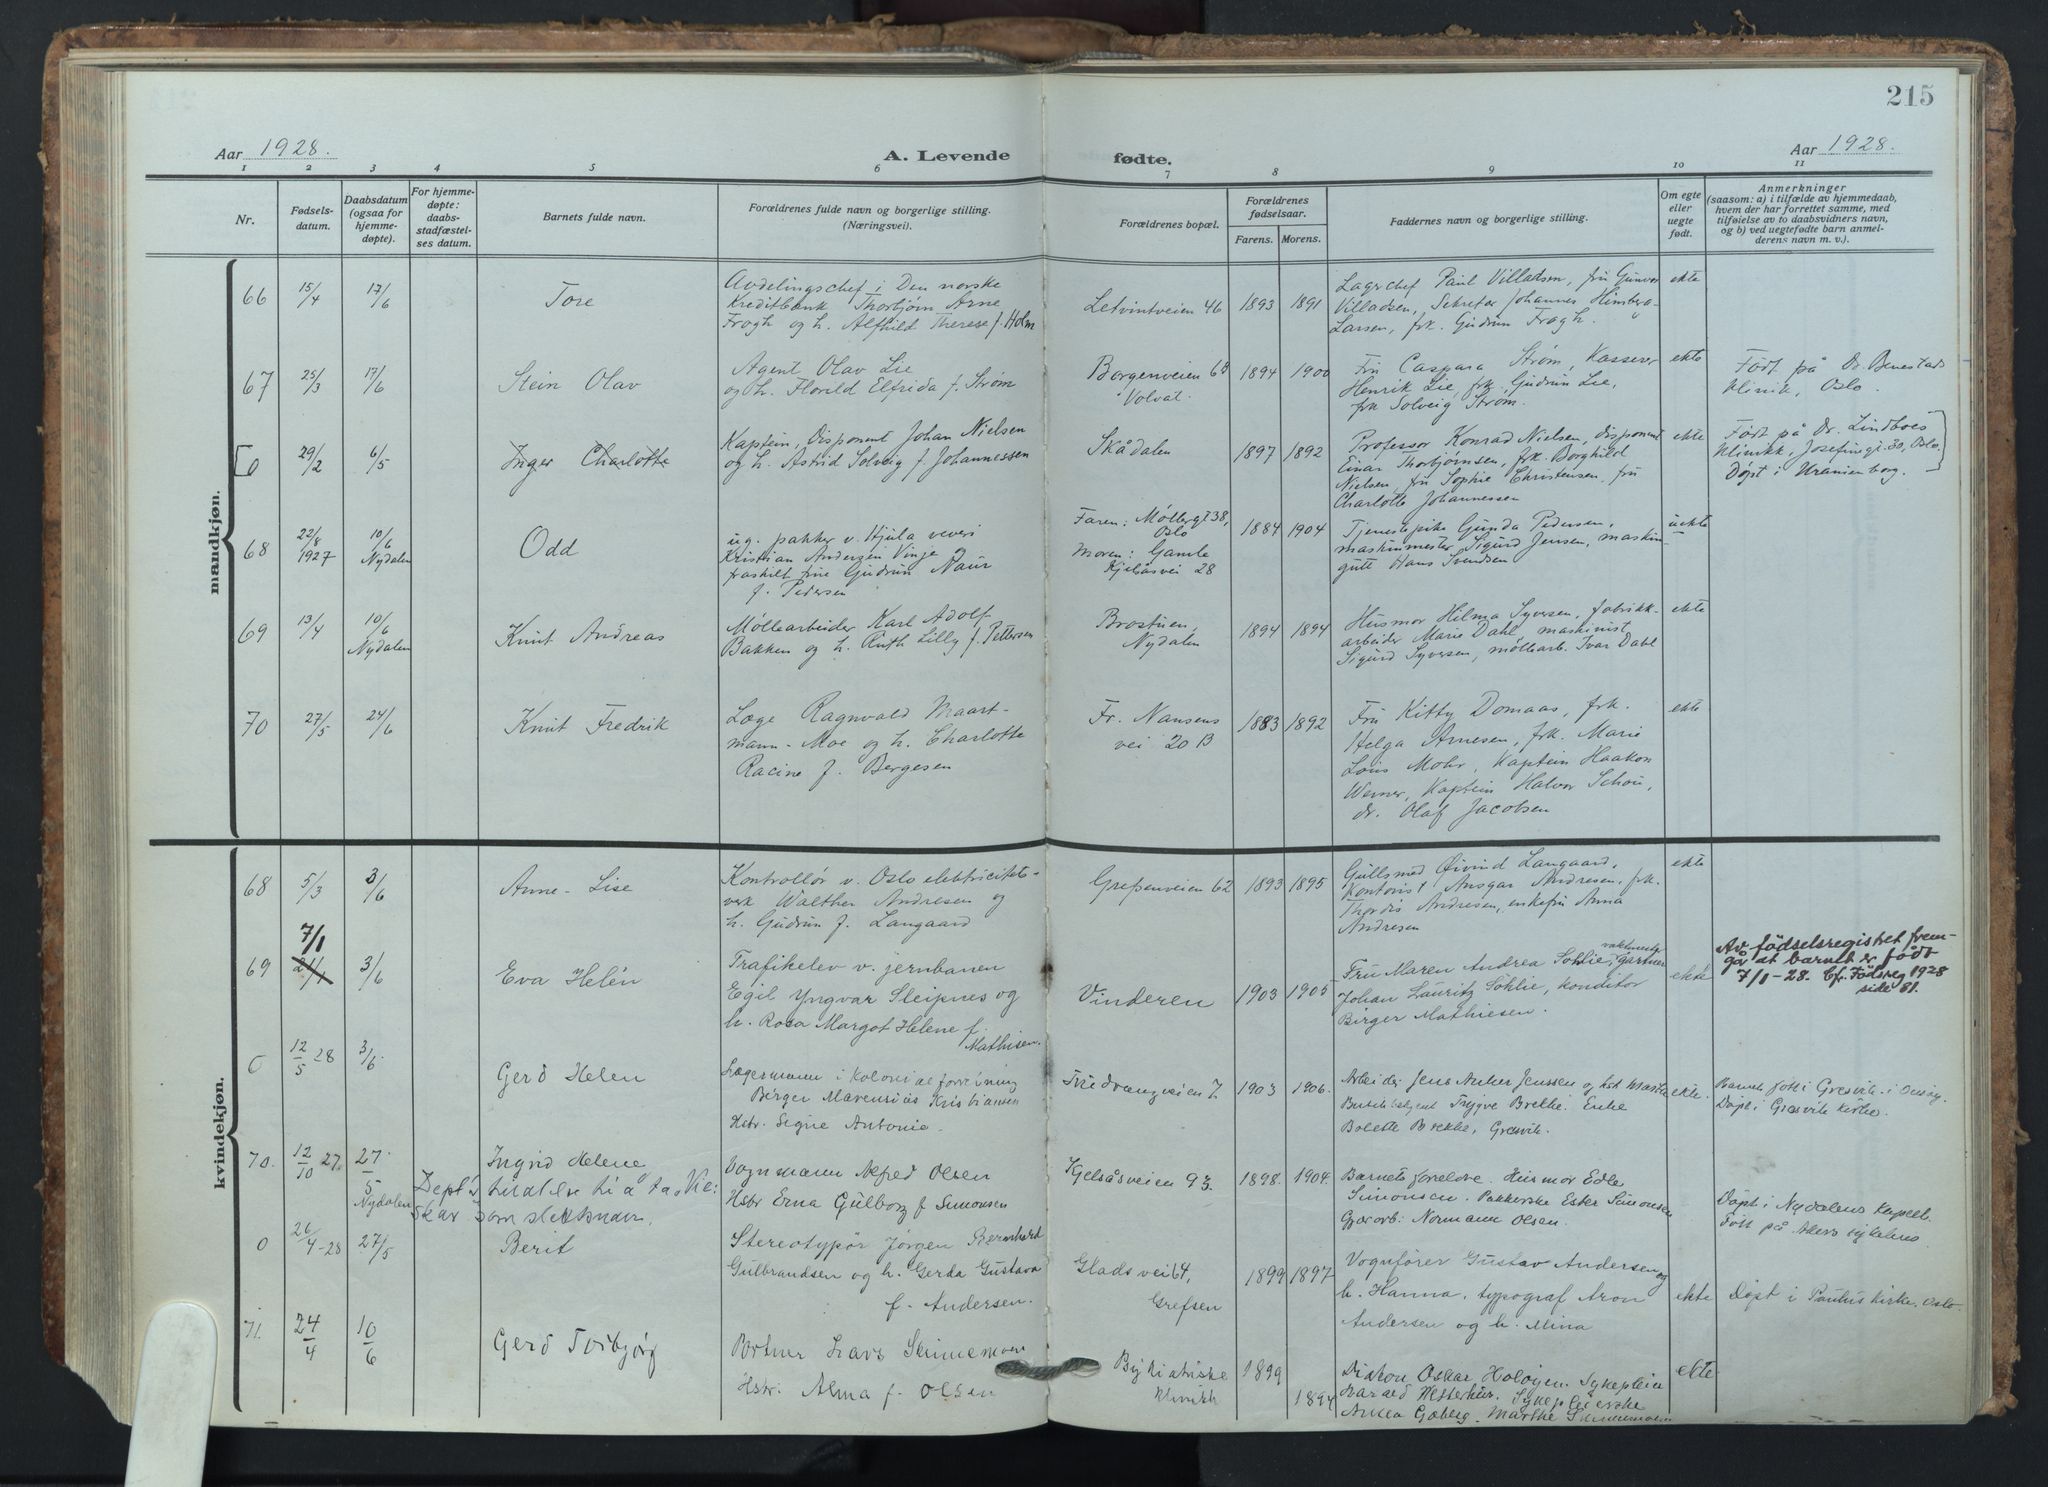 215
Aar 1928.
A. Levende fødte.
Aar 1928.
1 2 3 4 5 6 7 8 9 10 11
Nr.
Fødsels-
datum.
Daabsdatum
(ogsaa for
hjemme-
døpte).
For hjemme-
døpte:
daabs-
stadfæstel-
ses datum.
Barnets fulde navn.
Forældrenes fulde navn og borgerlige stilling.
(Næringsvei).
Forældrenes bopæl.
Forældrenes
fødselsaar.
Farens. Morens.
Faddernes navn og borgerlige stilling.
Om egte
eller
uegte
født.
Anmerkninger
(saasom: a) i tilfælde av hjemmedaab,
hvem der har forrettet samme, med
tilføielse av to daabsvidners navn,
og b) ved uegtefødte barn anmel-
derens navn m. v.).
mandkjøn.
66 15/4 17/6 Tore
Avdelingschef i Den norske
Kreditbank Thorbjørn Arne
Frogh og h. Alfhild Therese f. Holm
Letvintveien 46 1893 1891
Lagerchef Paul Villadsen, fru Gunvor
Villadsen, Sekretær Johannes Hinsberg-
Larsen, frk. Gudrun Frogh.
ekte
67 25/3 17/6 Stein Olav
Agent Olav Lie
og h. Florild Elfrida f. Strøm
Borgenveien 64
Volvat.
1894 1900
Fru Caspara Strøm, Kasserer
Henrik Lie, frk. Gudrun Lie,
frk Solveig Strøm.
ekte
Født på Dr. Benestads
klinik, Oslo.
0 29/2 6/5 Inger Charlotte
Kaptein, Disponent Johan Nielsen
og h. Astrid Solveig f. Johannessen
Skådalen 1897 1892
Professor Konrad Nielsen, disponent
Einar Thorbjørnsen, frk. Borghild
Nielsen, fru Sophie Christensen, fru
Charlotte Johannessen
ekte
Født på Dr. Lindboes
klinikk, Josefinegt. 30, Oslo.
Døpt i Uranienborg.
68 22/8 1927 10/6 Nydalen Odd
ug. pakker v. Hjula veveri
Kristian Andersen Vinje
fraskilt frue Gudrun Naur
f. Pedersen
Faren: Møllergt 38,
Oslo
Moren: Gamle
Kjelsåsvei 28
1884 1904
Tjenestepike Gunda Pedersen,
maskinmester Sigurd Jensen, maskin-
gutt Hans Svendsen
uekte
69 13/4 10/6 Nydalen Knut Andreas
Møllearbeider Karl Adolf
Bakken og h. Ruth Lilly f. Pettersen
Brostuen,
Nydalen
1894 1894
Husmor Hilma Syversen, fabrikk-
arbeider Marie Dahl, maskinist
Sigurd Syversen, møllearb. Ivar Dahl
ekte
70 27/5 24/6 Knut Fredrik
Læge Ragnvald Maart-
mann-Moe og h. Charlotte
Racine f. Bergesen
Fr. Nansens
vei 20 B
1883 1892
Fru Kitty Domaas, frk.
Helga Arnesen, frk. Marie
Lous Mohr, Kaptein Haakon
Werner, Kaptein Halvor Schou,
dr. Olaf Jacobsen
ekte
kvindekjøn.
68 5/3 3/6 Anne-Lise
Kontrollør v. Oslo elektricitets-
verk Walther Andresen og
h. Gudrun f. Langaard
Grefsenveien 62 1893 1895
Gullsmed Øivind Langaard,
Kontorist Ansgar Andresen, frk.
Thordis Andresen, enkefru Anna
Andresen
ekte
69 7/1 21/1 3/6 Eva Helén
Trafikelev v. jernbanen
Egil Yngvar Sleipnes og
h. Rosa Margot Helene f.
Mathisen.
Vinderen 1903 1905
Fru Maren Andrea Sohlie, gartner
Johan Lauritz Sohlie, konditor
Birger Mathiesen.
ekte
Av fødselsregistret frem-
går at barnet er født
7/1-28. Cfr. Fødsreg 1928
side 81.
0 12/5 28 3/6 Gerd Helen
Lagermann i Kolonialforretning
Birger Marensius Kristiansen
Hstr. Signe Antonie.
Tuedrangveien 7 1903 1906.
Arbeider Jens Anker Jenssen og hst Marta
Butikkbetjent Trygve Brekke. Enke
Bolette Brekke, Gresvik.
ekte.
Barnet født i Gresvik i Onsøy.
Døpt i Gresvik kirke.
70. 12/10 27. 27/5 Nydalen Ingrid Helene
Vognmann Alfred Olsen
Hstr Erna Gulborg f Simonsen
Kjelsåsveien 93. 1898. 1904.
Barnets foreldre. Husmor Edle
Simonsen. Pakkerske Ester Simonsen
Grovarb. Normann Olsen.
Døpt i Nydalens kapell.
Født på Akers sykehus.
0 26/4-28 27/5 Berit
Stereotypør Jørgen Bernhard
Gulbrandsen og h. Gerda Gustava
f. Andersen.
Gladsvei 64,
Grefsen
1899 1897
Vognfører Gustav Andersen og
h. Hanna, typograf Aron
Andersen og h. Mina
ekte
Døpt i Paulus kirke, Oslo
71. 24/4 10/6 Gerd Torbjørg
Portner Lars Skinnemoen
Hstr. Alma f. Olsen
Psykiatriske
Klinikk
1899 1894
Diakon Oskar Holøyen. Sykepleier
Harald Westerhus. Sykepleierske
Anna Goberg. Marthe Skinnemoen
ekte